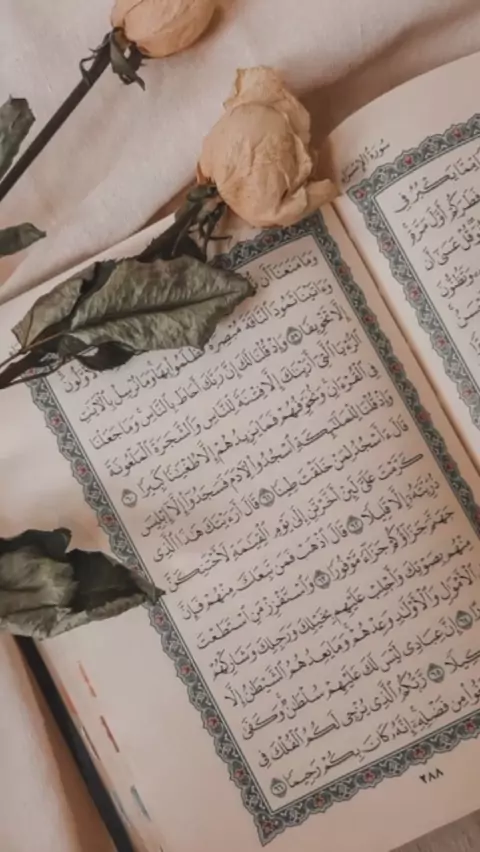 سُورَةُ الإِسْرَاءِ
مِّمَّا يَكْبُرُ فِى
فَطَرَكُمْ أَوَّلَ مَرَّةٍ
قُلْ عَسَىٰٓ أَن
وَتَظُنُّونَ
وَمَا مَنَعَنَآ أَن
ٱلْأَوَّلُونَ
وَءَاتَيْنَا ثَمُودَ ٱلنَّاقَةَ مُبْصِرَةً فَظَلَمُوا۟ بِهَا وَمَا نُرْسِلُ بِٱلْـَٔايَٰتِ
إِلَّا تَخْوِيفًا ٥٩ وَإِذْ قُلْنَا لَكَ إِنَّ رَبَّكَ أَحَاطَ بِٱلنَّاسِ وَمَا جَعَلْنَا
ٱلرُّءْيَا ٱلَّتِىٓ أَرَيْنَٰكَ إِلَّا فِتْنَةً لِّلنَّاسِ وَٱلشَّجَرَةَ ٱلْمَلْعُونَةَ
فِى ٱلْقُرْءَانِ وَنُخَوِّفُهُمْ فَمَا يَزِيدُهُمْ إِلَّا طُغْيَٰنًا كَبِيرًا ٦٠
وَإِذْ قُلْنَا لِلْمَلَٰٓئِكَةِ ٱسْجُدُوا۟ لِـَٔادَمَ فَسَجَدُوٓا۟ إِلَّآ إِبْلِيسَ
قَالَ ءَأَسْجُدُ لِمَنْ خَلَقْتَ طِينًا ٦١ قَالَ أَرَءَيْتَكَ هَٰذَا ٱلَّذِى
كَرَّمْتَ عَلَىَّ لَئِنْ أَخَّرْتَنِ إِلَىٰ يَوْمِ ٱلْقِيَٰمَةِ لَأَحْتَنِكَنَّ
ذُرِّيَّتَهُۥٓ إِلَّا قَلِيلًا ٦٢ قَالَ ٱذْهَبْ فَمَن تَبِعَكَ مِنْهُمْ فَإِنَّ
جَهَنَّمَ جَزَآؤُكُمْ جَزَآءً مَّوْفُورًا ٦٣ وَٱسْتَفْزِزْ مَنِ ٱسْتَطَعْتَ
مِنْهُم بِصَوْتِكَ وَأَجْلِبْ عَلَيْهِم بِخَيْلِكَ وَرَجِلِكَ وَشَارِكْهُمْ
ٱلْأَمْوَٰلِ وَٱلْأَوْلَٰدِ وَعِدْهُمْ وَمَا يَعِدُهُمُ ٱلشَّيْطَٰنُ إِلَّا
٦٤ إِنَّ عِبَادِى لَيْسَ لَكَ عَلَيْهِمْ سُلْطَٰنٌ وَكَفَىٰ
٦٥ رَّبُّكُمُ ٱلَّذِى يُزْجِى لَكُمُ ٱلْفُلْكَ فِى
مِن فَضْلِهِۦٓ إِنَّهُۥ كَانَ بِكُمْ رَحِيمًا ٦٦
٢٨٨